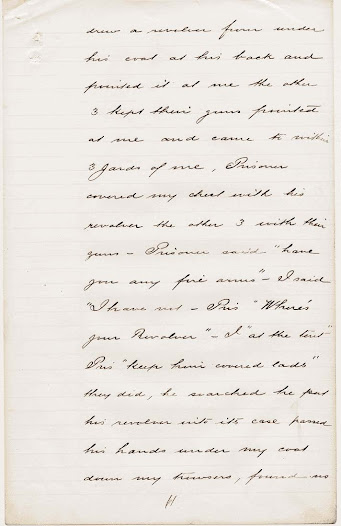 drew a revolver from under
his coat at his back and
pointed it at me the other
3 kept their guns pointed
at me and came to within
3 yards of me, Prisoner
covered my chest with his
revolver the other 3 with their
guns - Prisoner said "have
you any fire arms" - I said
"I have not - Pris "Where's
your Revolver" - I "at the tent"
Pris "keep him covered lads"
they did, he searched he put
his revolver into its case passed
his hands under my coat
down my trowsers, found no